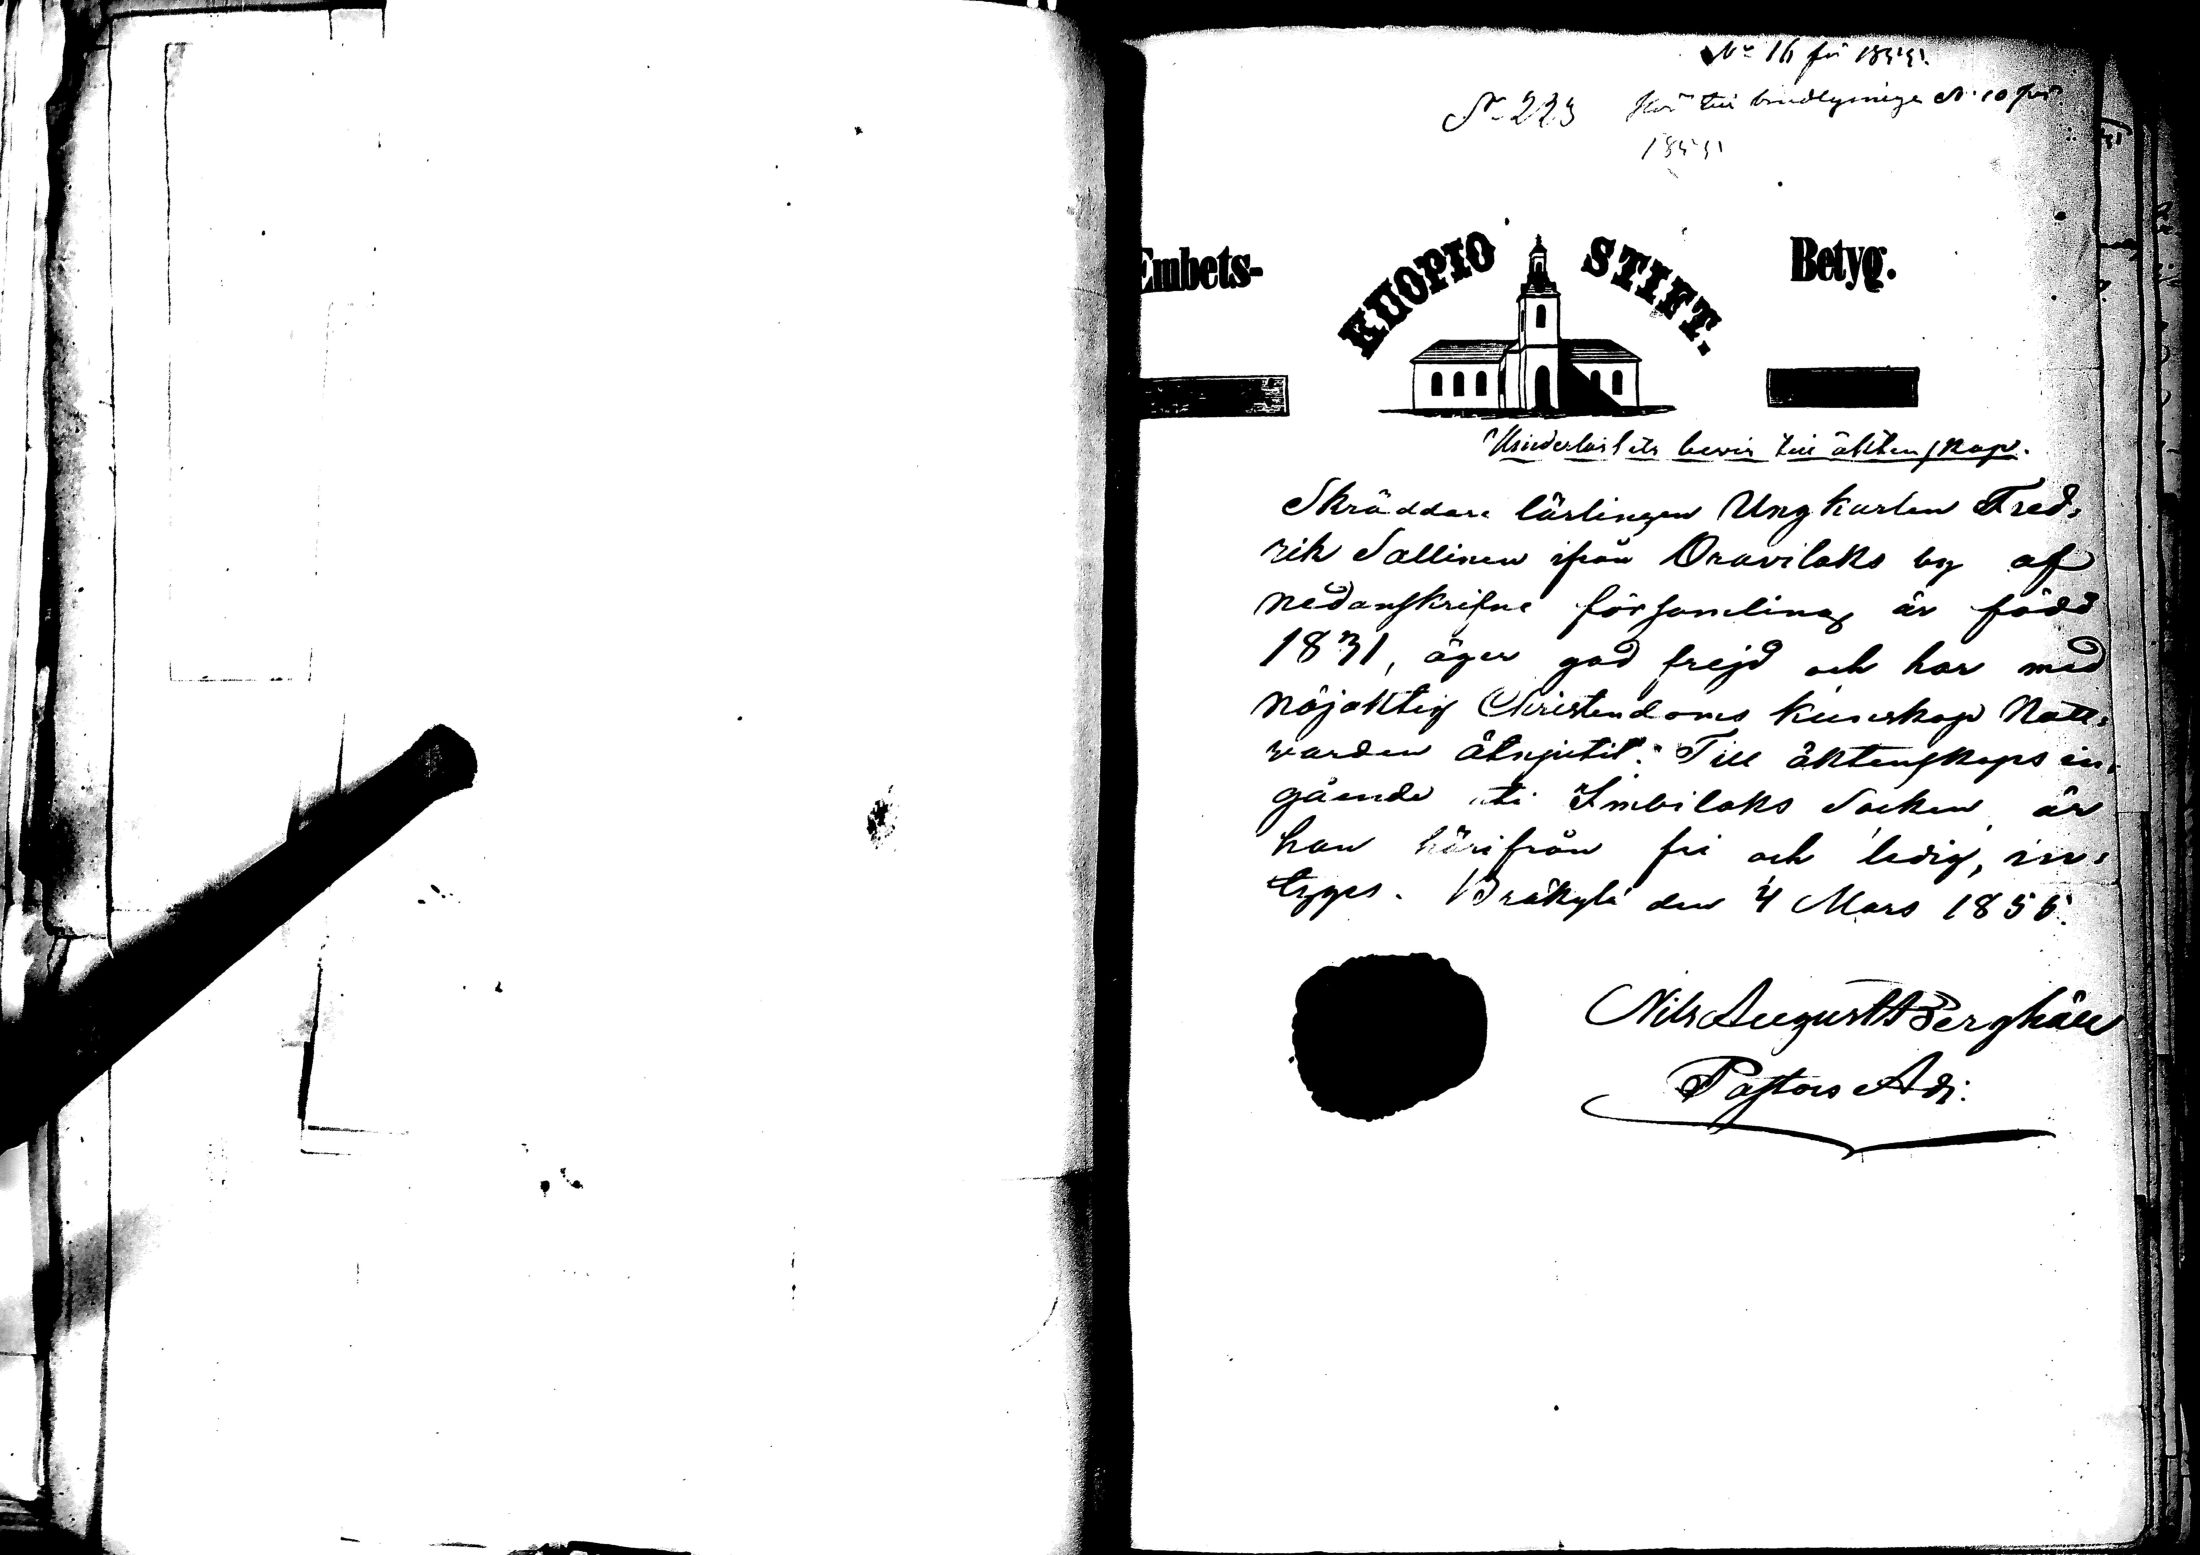 No 16 för 1855.
No 223 Hör till bindlysningen No 10 för
1855
Embets-
KUOPIO STIFT.
Betyg.
Hinderlöshets bevis till äktenskap.
Skräddare lärlingen Ungkarlen Fred=
rik Sallinen ifrån Oravilaks by af
nedanskrifne församling är född
1831, äger god frejd och har med
nöjaktig Christendoms kunskap Natt=
varden åtnjutit. Till äktenskaps in=
gående uti Imbilaks Socken är
han härifrån fri och ledig, in=
tyges. Bräkylä den 4 Mars 1855.
Nils August Berghäll
Pastors Adj: